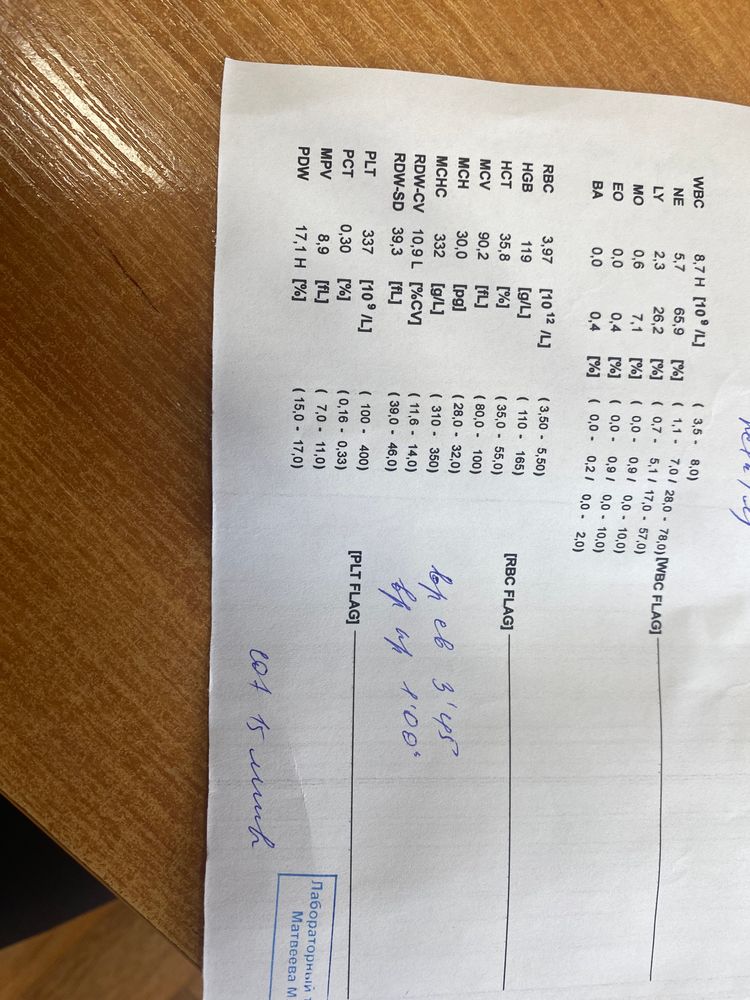 WBC 8,7 H [10⁹ /L] ( 3,5 - 8,0)
NE 5,7 65,9 [%] ( 1,1 - 7,0 / 28,0 - 78,0) [WBC FLAG]
LY 2,3 26,2 [%] ( 0,7 - 5,1 / 17,0 - 57,0)
MO 0,6 7,1 [%] ( 0,0 - 0,9 / 0,0 - 10,0)
EO 0,0 0,4 [%] ( 0,0 - 0,9 / 0,0 - 10,0)
BA 0,0 0,4 [%] ( 0,0 - 0,2 / 0,0 - 2,0)
RBC 3,97 [10¹² /L] ( 3,50 - 5,50)
HGB 119 [g/L] ( 110 - 165) [RBC FLAG]
HCT 35,8 [%] ( 35,0 - 55,0)
MCV 90,2 [fL] ( 80,0 - 100)
MCH 30,0 [pg] ( 28,0 - 32,0)
MCHC 332 [g/L] ( 310 - 350)
RDW-CV 10,9 L [%CV] ( 11,6 - 14,0)
RDW-SD 39,3 [fL] ( 39,0 - 46,0)
вр св 3'45
вр кр 1'00"
PLT 337 [10⁹ /L] ( 100 - 400) [PLT FLAG]
PCT 0,30 [%] ( 0,16 - 0,33)
MPV 8,9 [fL] ( 7,0 - 11,0)
PDW 17,1 H [%] ( 15,0 - 17,0)
соэ 15 мм/ч
Лабораторный
Матвеева М